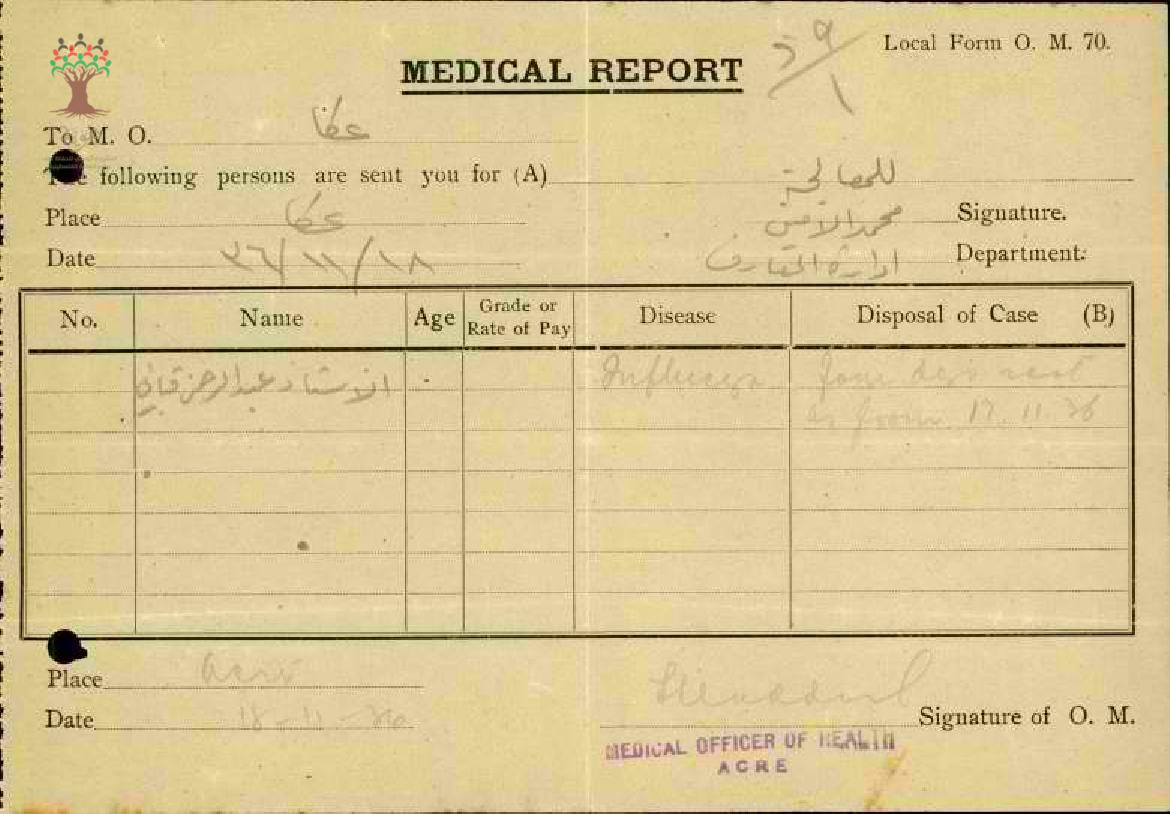 Local Form O. M. 70.
MEDICAL REPORT
٥٩/١
To M. O. عكا
The following persons are sent you for (A) للمعالجة
Place عكا محمد الامين Signature.
Date ٣٦/١١/١٨ ادارة المعارف Department:
No. Name Age Grade or Rate of Pay Disease Disposal of Case (B)
الاستاذ عبد الرحمن Influenza four days rest
as from 17.11.36
Place Acre
Date 18-11-36 Signature of O. M.
MEDICAL OFFICER OF HEALTH
ACRE